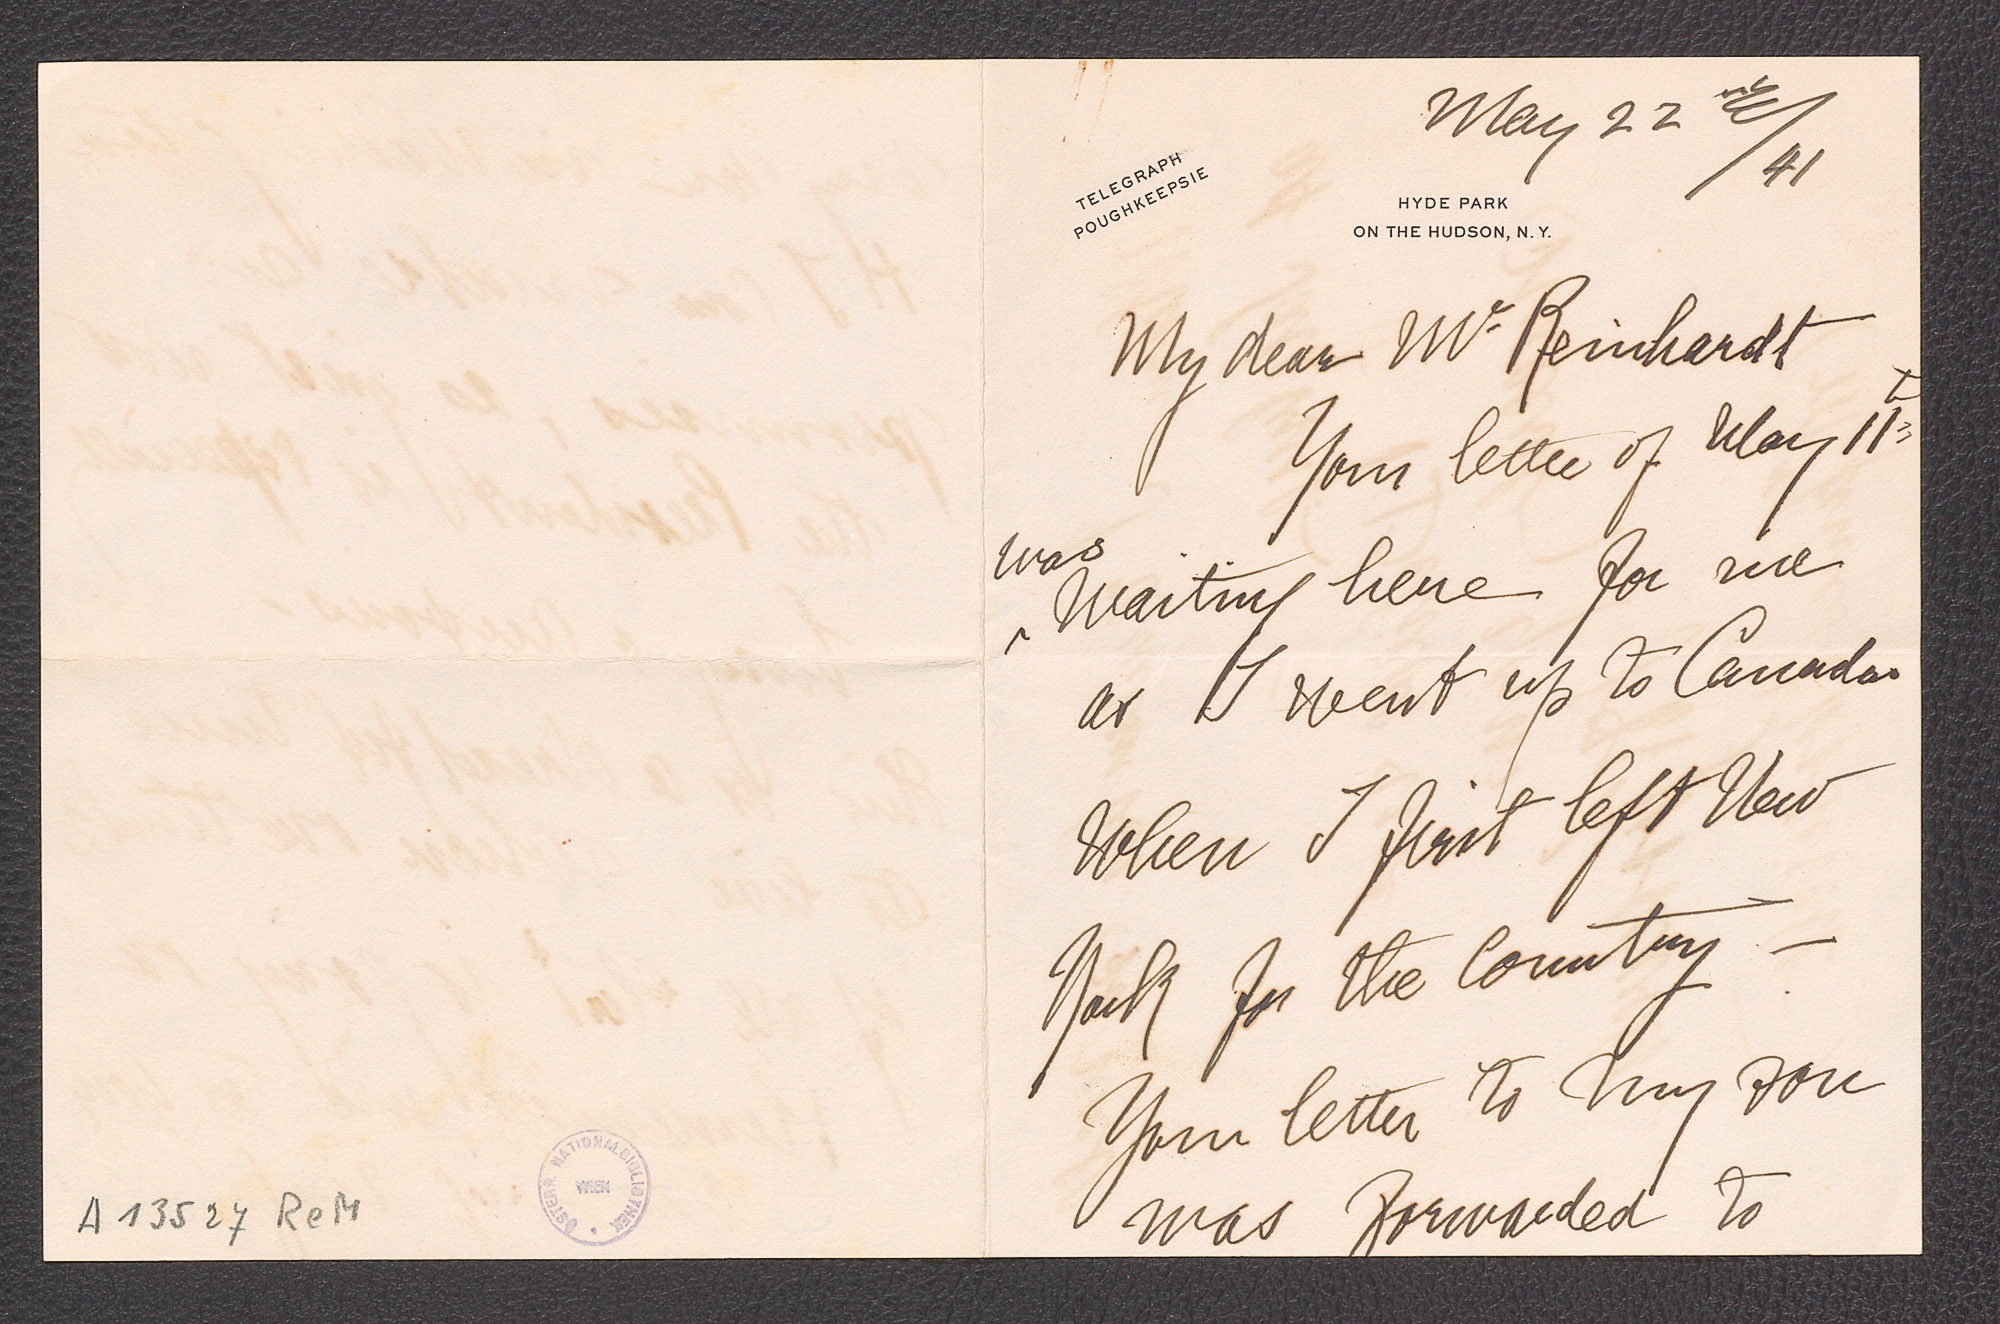 A 13527 ReM
ÖSTERR. NATIONALBIBLIOTHEK
WIEN
May 22nd/41
TELEGRAPH
POUGHKEEPSIE
HYDE PARK
ON THE HUDSON, N.Y.
My dear Mr. Reinhardt
Your letter of May 11th
was
waiting here for me
as I went up to Canada
when I first left New
York for the Country –
Your letter to my son
was forwarded to